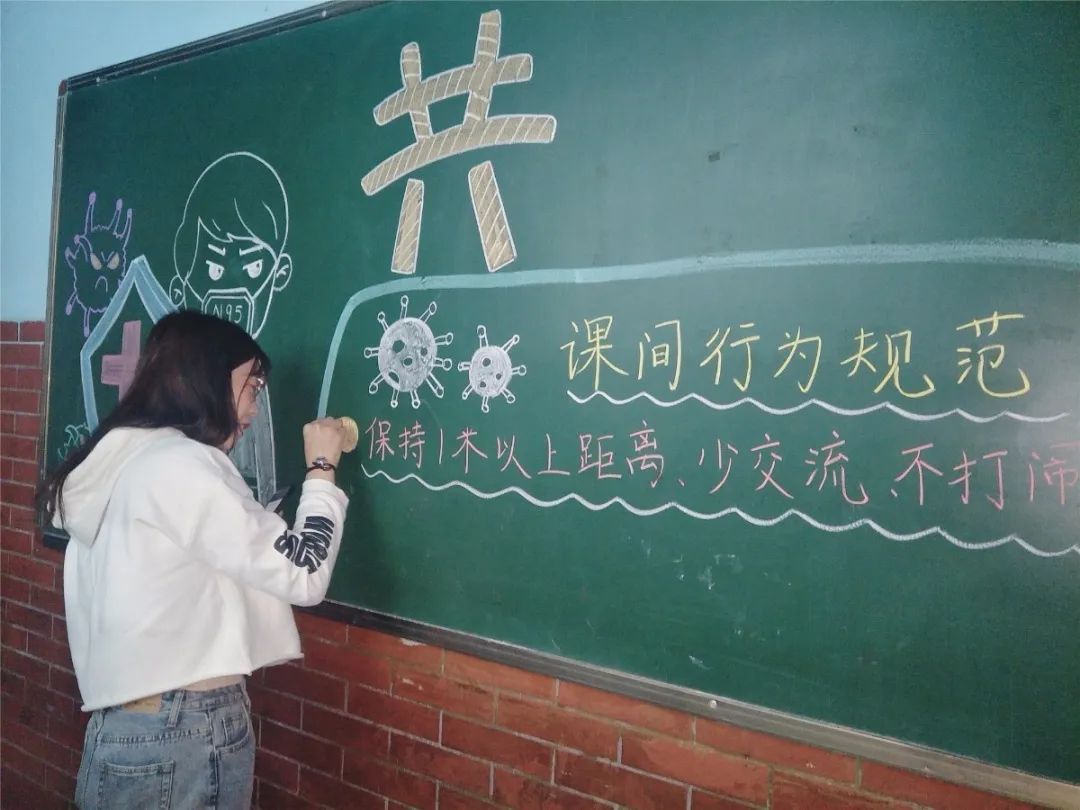 共
N95
课间行为规范
保持1米以上距离、少交流、不打闹